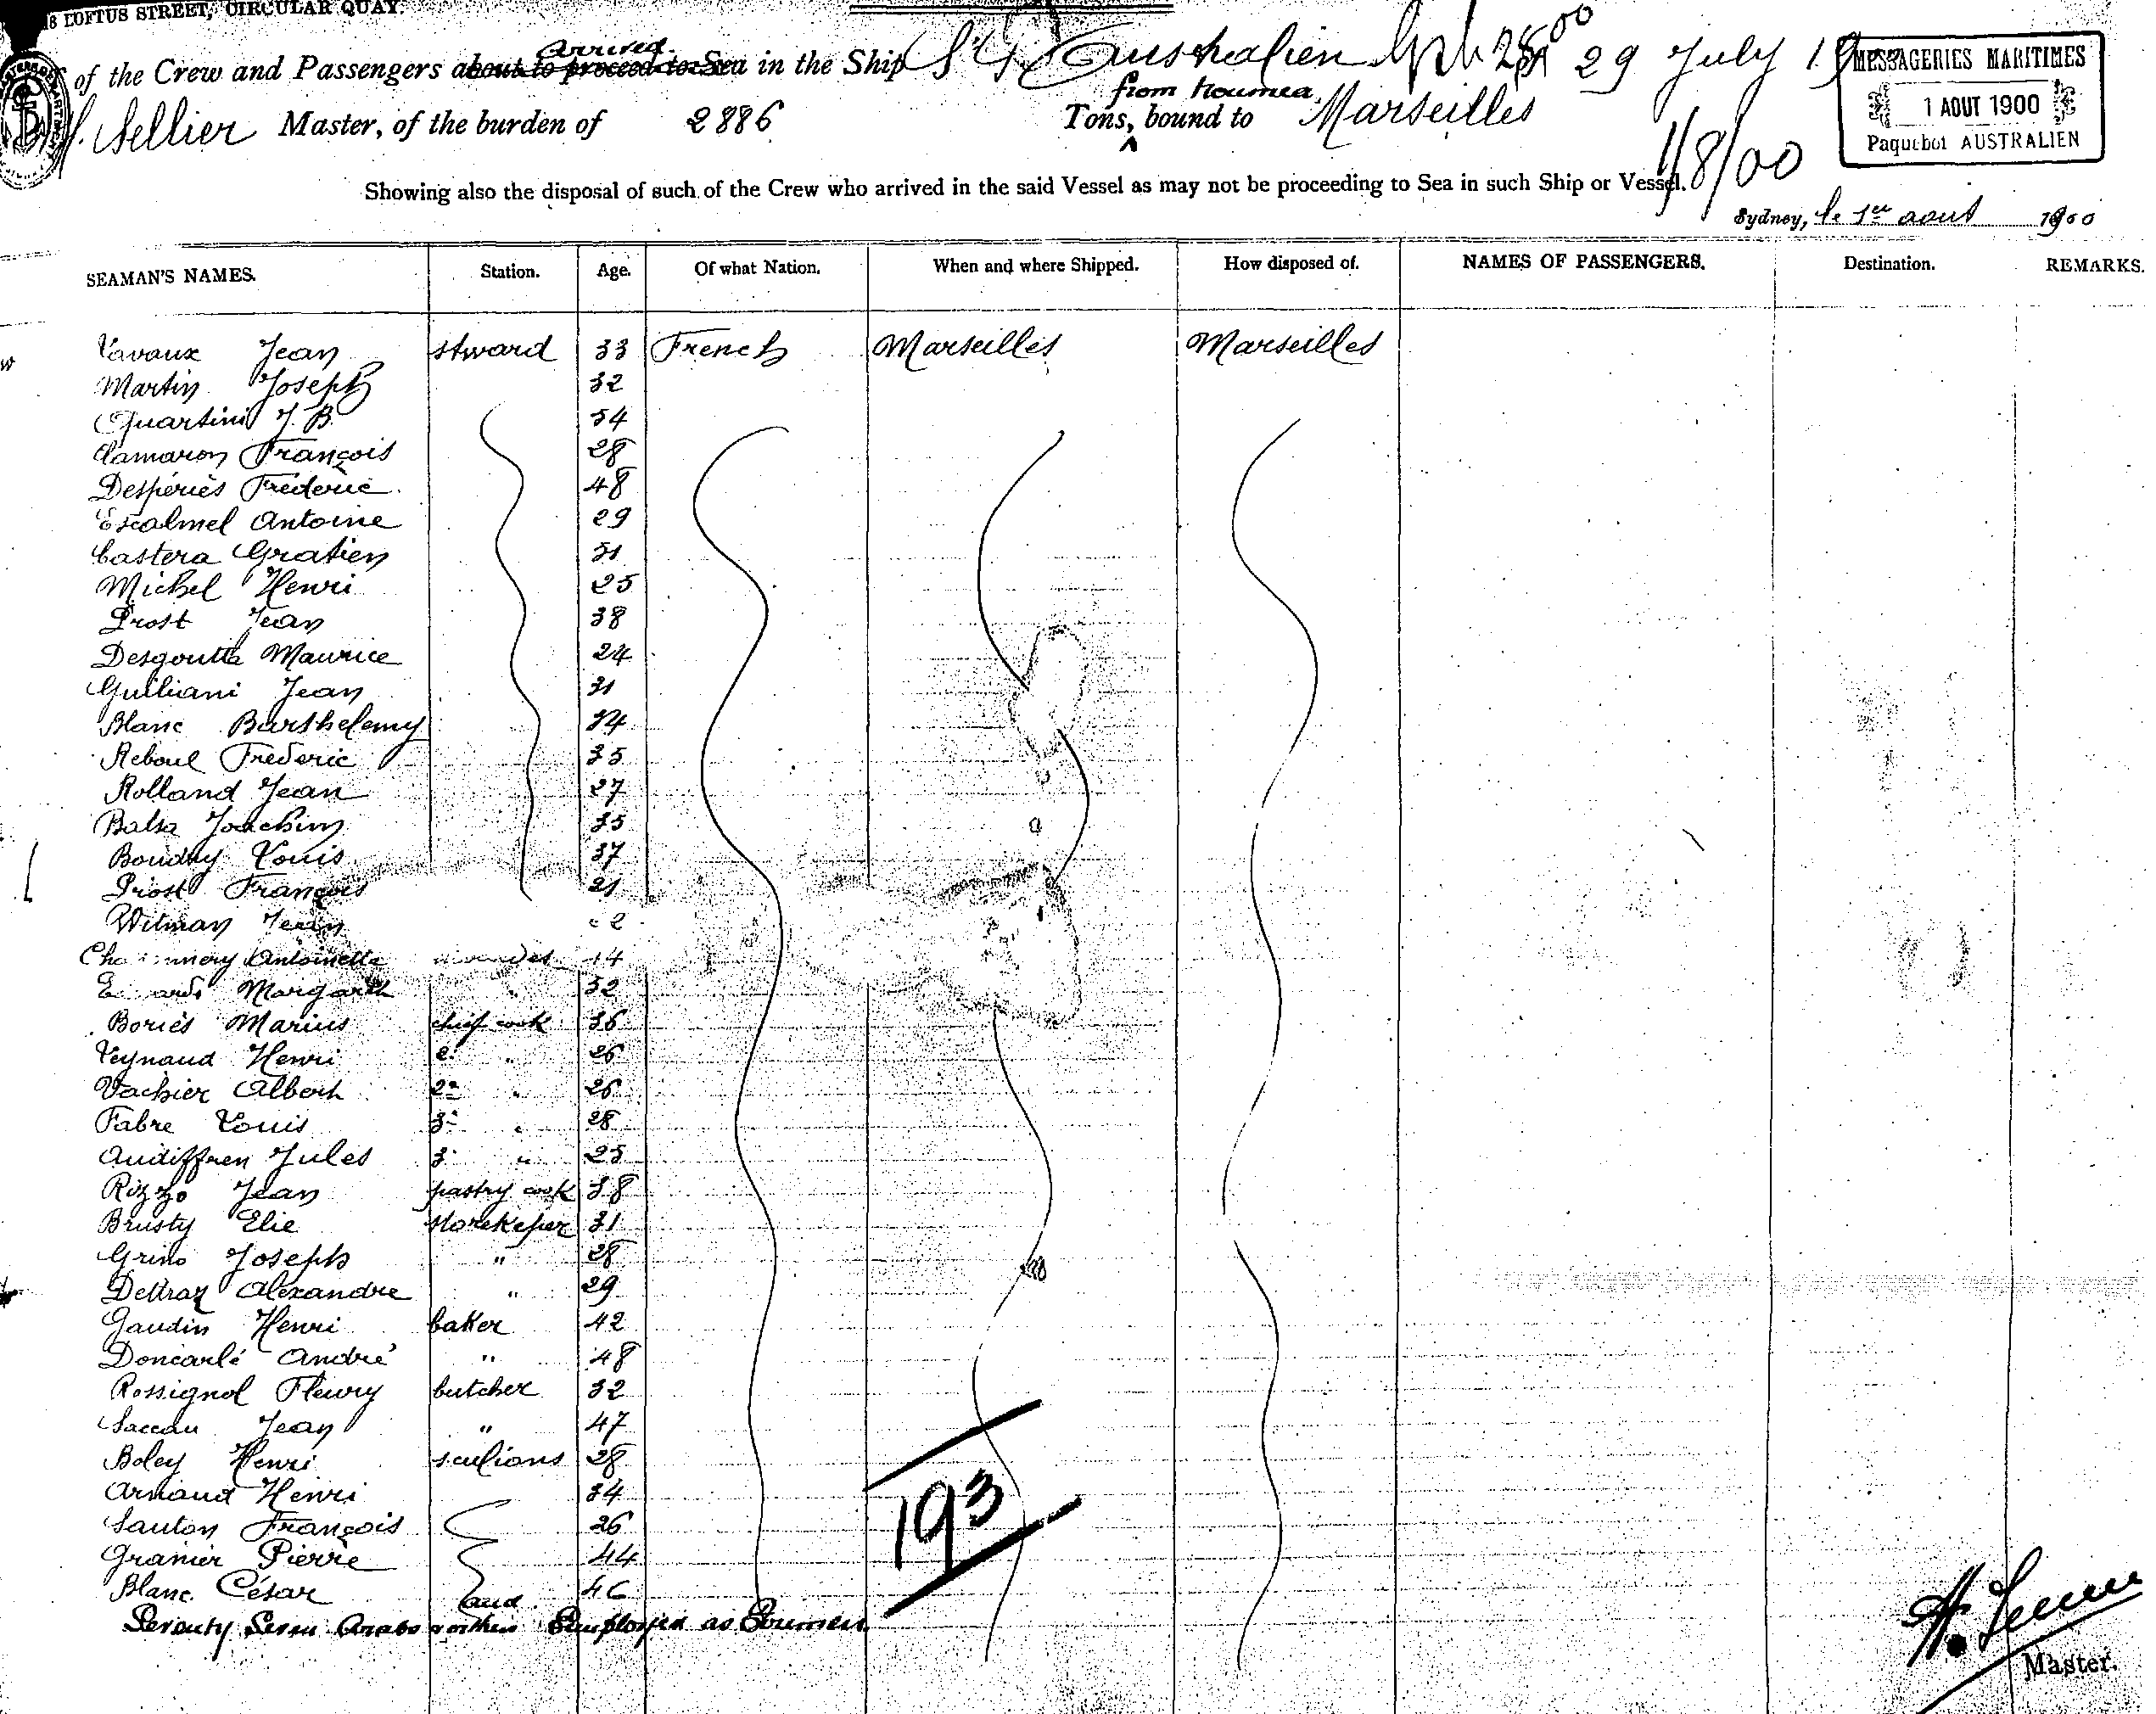 LOFTUS STREET, CIRCULAR QUAY
arrived
of the Crew and Passengers about to proceed to Sea in the Ship S.S. Australien 29 July
MESSAGERIES MARITIMES
1 AOUT 1900
Paquebot AUSTRALIEN
from Noumea
Sellier Master, of the burden of 2886 Tons, bound to Marseilles
1/8/00
Showing also the disposal of such of the Crew who arrived in the said Vessel as may not be proceeding to Sea in such Ship or Vessel.
Sydney, le 1er aout 1900
SEAMAN'S NAMES. Station. Age. Of what Nation. When and where Shipped. How disposed of. NAMES OF PASSENGERS. Destination. REMARKS.
Vavaux Jean stward 33 French Marseilles Marseilles
Martin Joseph 32
Quartini J. B. 54
Camaron François 28
Despériès Fréderic 48
Escalmel Antoine 29
Castera Gratien 31
Michel Henri 25
Prost Jean 38
Desgoutte Maurice 24
Guiliani Jean 31
Blanc Barthelemy 34
Reboul Frederic 35
Rolland Jean 27
Balsa Joachim 35
Boudry Louis 37
Priost François 21
Witman Jean
Antoinette
Margarth 32
Boriès Marius chief cook 36
Veynaud Henri 2 " 26
Vachier Albert 2n " 26
Fabre Louis 3 " 28
Audiffren Jules 3 " 25
Rizzo Jean pastry cook 38
Brusty Elie storekeper 31
Grino Joseph " 28
Dettraz Alexandre " 29
Gaudin Henri baker 42
Doncarlé André " 48
Rossignol Fleury butcher 32
Saccau Jean " 47
Boley Henri sculions 28
Arnaud Henri 34
Sauton François 26
Granier Pierre 44
Blanc César 46
and
Seventy Seven Arabs Employed as
193
Master.